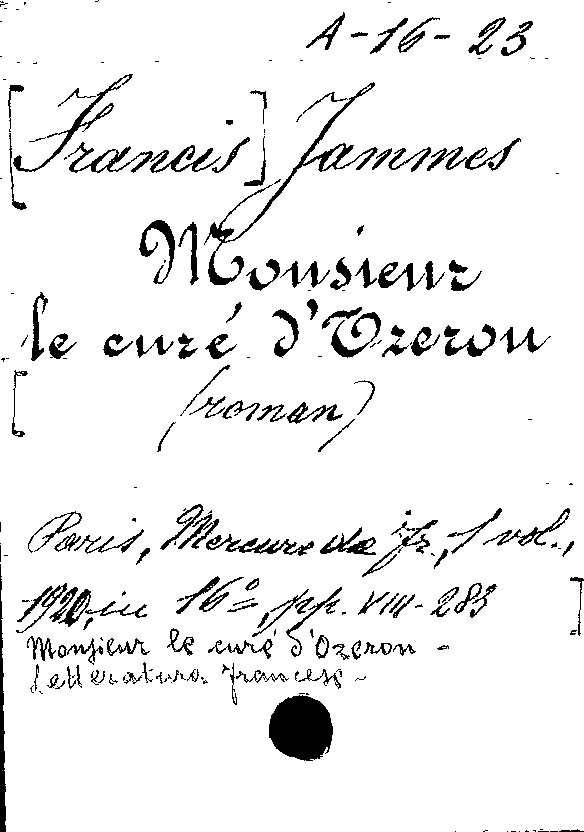 A-16-23
[Francis] Jammes
Monsieur
le curé d'Ozeron
[ (roman)
Paris, Mercure de Fr., 1 vol.,
1920, in 16º, pp. VIII-283 ]
Monsieur le curé d'Ozeron -
Letteratura francese -